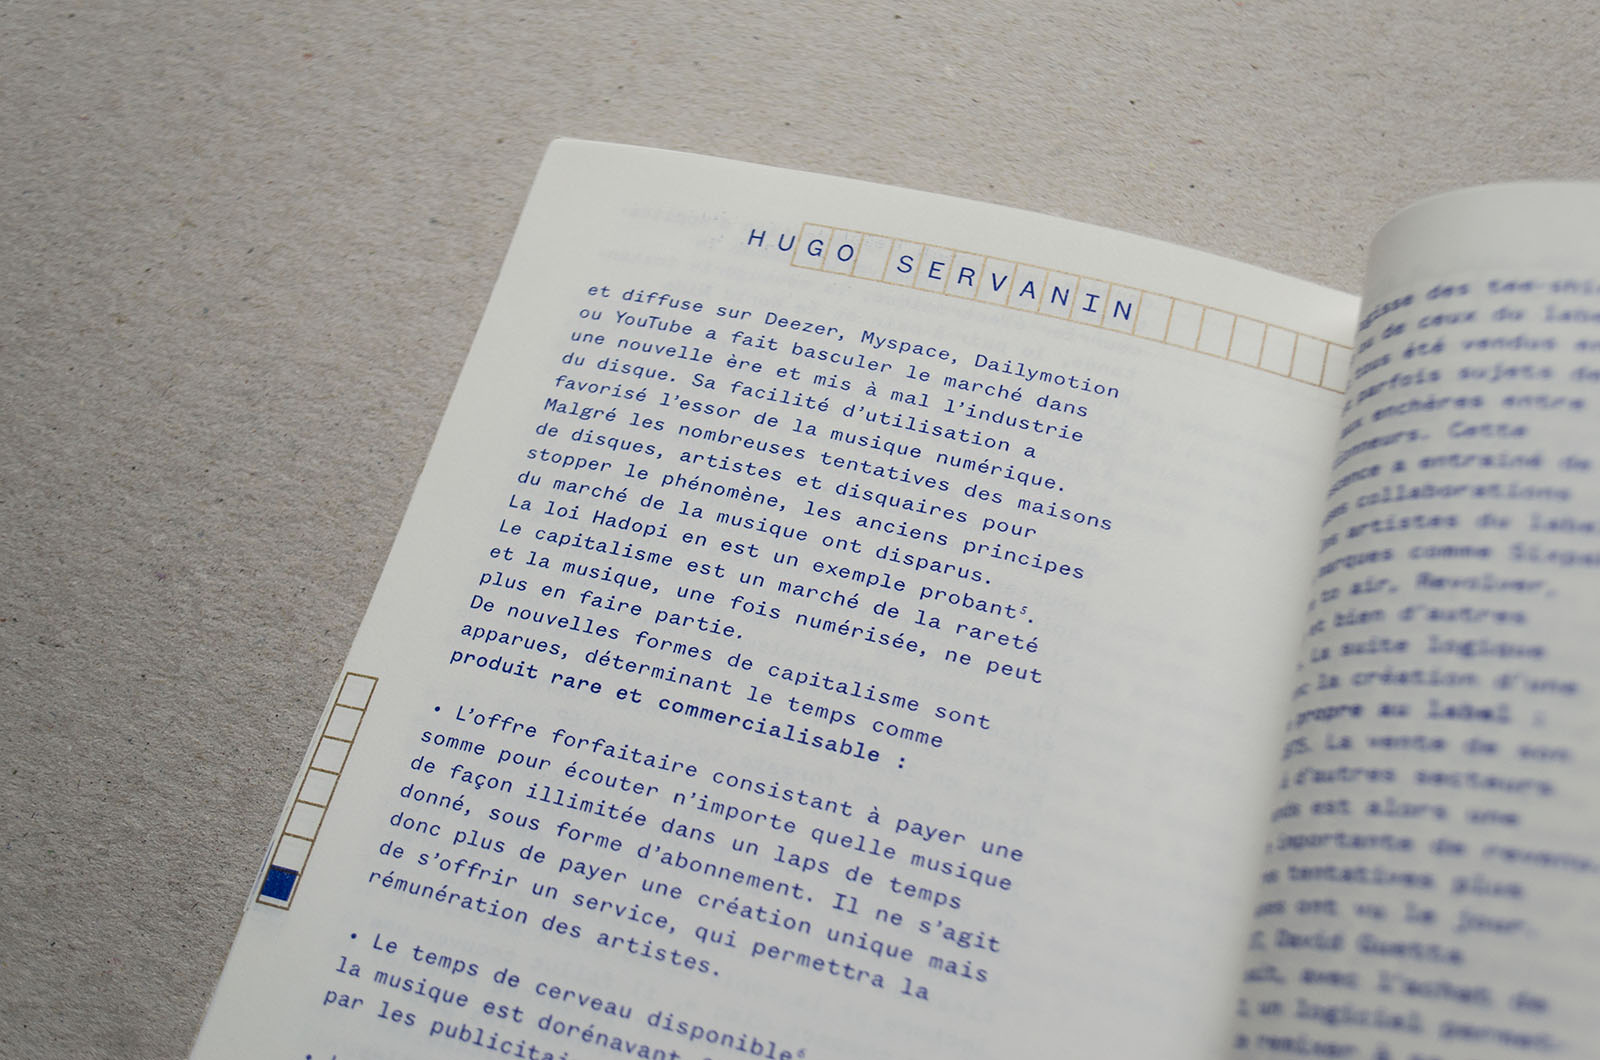 HUGO SERVANIN
et diffuse sur Deezer, Myspace, Dailymotion
ou YouTube a fait basculer le marché dans
une nouvelle ère et mis à mal l’industrie
du disque. Sa facilité d’utilisation a
favorisé l’essor de la musique numérique.
Malgré les nombreuses tentatives des maisons
de disques, artistes et disquaires pour
stopper le phénomène, les anciens principes
du marché de la musique ont disparus.
La loi Hadopi en est un exemple probant⁵.
Le capitalisme est un marché de la rareté
et la musique, une fois numérisée, ne peut
plus en faire partie.
De nouvelles formes de capitalisme sont
apparues, déterminant le temps comme
produit rare et commercialisable :
• L’offre forfaitaire consistant à payer une
somme pour écouter n’importe quelle musique
de façon illimitée dans un laps de temps
donné, sous forme d’abonnement. Il ne s’agit
donc plus de payer une création unique mais
de s’offrir un service, qui permettra la
rémunération des artistes.
• Le temps de cerveau disponible⁶
la musique est dorénavant
par les
des tee-shi
de ceux du labe
tous été vendus en
parfois sujets de
enchères entre
Cette
a entraîné de
collaborations
artistes du labe
comme
air, Revolver,
bien d’autres
La suite logique
la création d’une
propre au label :
La vente de son
d’autres secteurs
est alors une
importante de revenu
tentatives plus
ont vu le jour.
David Guetta
avec l’achat de
un logiciel permet-
remixer à